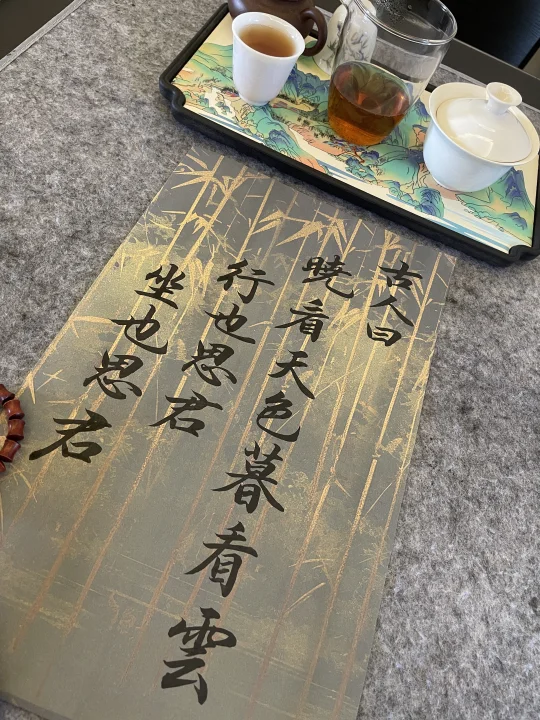 古人曰
晓看天色暮看雲
行也思君
坐也思君